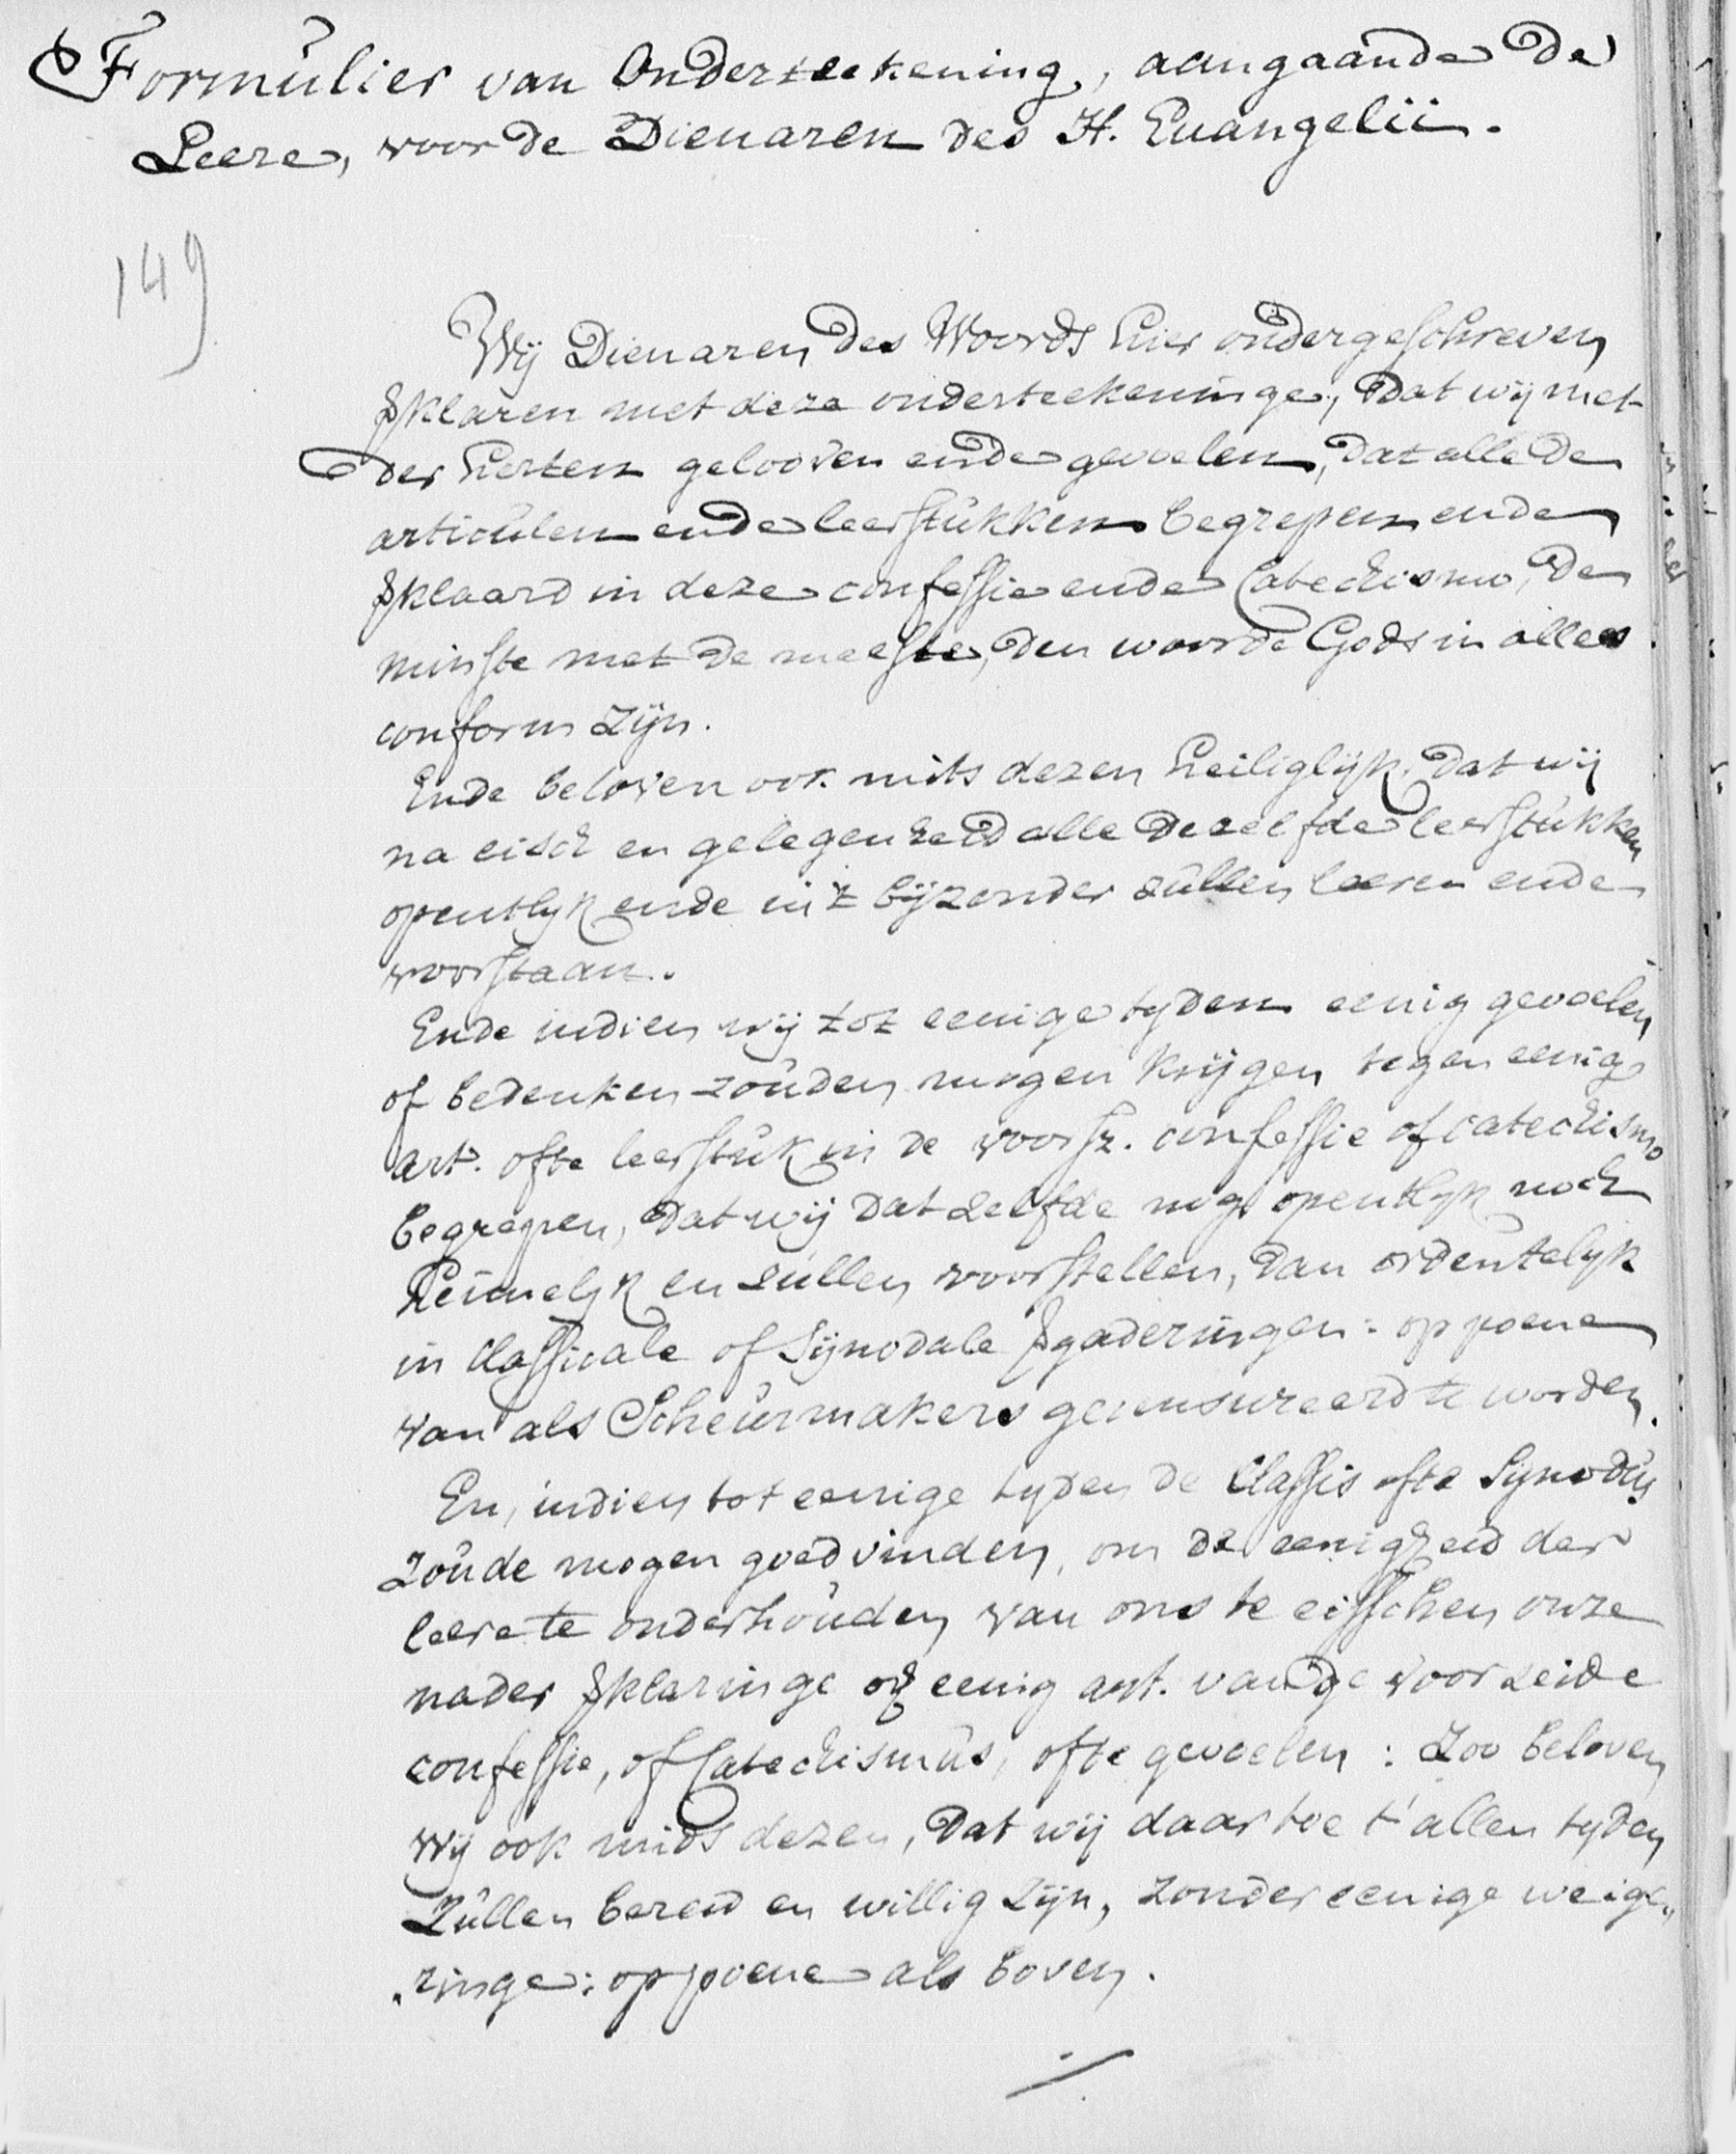 Formulier van Onderteekening, aangaande de
Leere, voor de Dienaren des H. Euangelii.
149
Wij Dienaren des Woords hier ondergeschreven,
Vklaren met deze onderteekeninge, dat wij met
der herten gelooven ende gevoelen, dat alle de
articulen ende leerstukken begrepen ende
Vklaard in deze confessie ende Catechismo, de
minste met de meeste, den woorde Gods in alles
conform zijn.
Ende beloven ook mits dezen heiliglijk, dat wij
na eisch en gelegenheid alle dezelfde leerstukken
opentlyk ende in 't bijzonder zullen leeren ende
voorstaan.
Ende indien wij tot eenige tyden eenig gevoelen
of bedenken zouden mogen krijgen tegen eenig
art. ofte leerstuk in de voorsz. confessie of catechismo
begrepen, dat wij dat zelfde nog opentlyk noch
heimelyk en zullen voorstellen, dan ordentelyk
in Classicale of Sijnodale Vgaderingen: op poene
van als Scheurmakers gecensureerd te worden.
En, indien tot eenige tyden de Classis ofte Synodus
zoude mogen goedvinden, om de eenigheid der
leere te onderhouden, van ons te eisschen onze
nader Vklaringe op eenig art. van de voorzeide
confessie, of Catechismus, ofte gevoelen: Zoo beloven
wij ook mids dezen, dat wij daar toe t'allen tyden
zullen bereid en willig zijn, zonder eenige weige„
„ringe: op poene als boven.